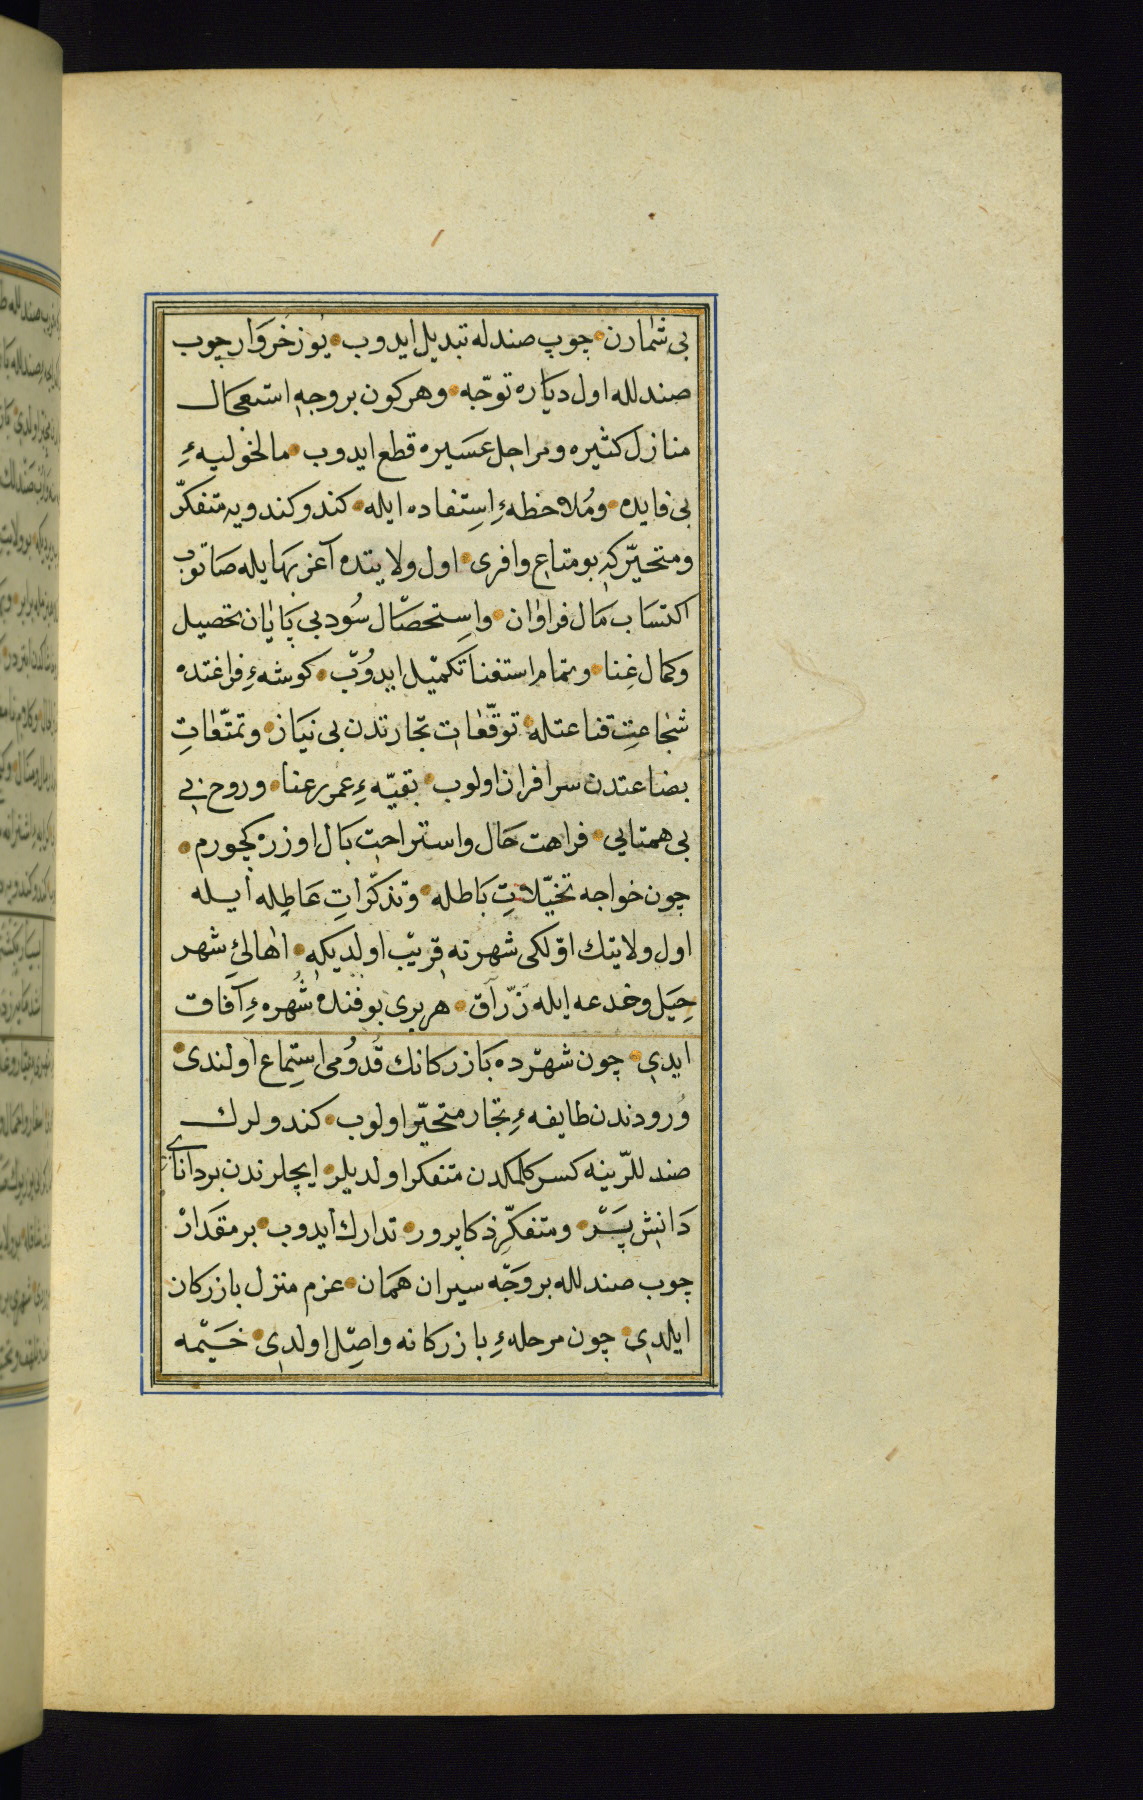 بی شمارن چوب صندله تبدیل ایدوب یُوز خَروَار چوب
صندلله اول دیَاره توجّه وهرکون بر وجهِ استعجال
منازل کثیره ومراحل عَسَیره قطع ایدوب مالخولیهءِ
بی فایده ومُلاحظهءِ اِستفاده ایله کندو کندویه متفکّر
ومتحیّر که بو متاع وافری اول ولایتده آغر بها یله صاتوب
اکتساب مَال فراوان واِستحصَال سُود بی پَایَان تحصیل
وکمال غِنا وتمام استغنا تکمیل ایدُوب کوشهءِ فراغتده
شجاعتِ قناعتله توقّعات تجارتدن بی نیَاز وتمتّعاتِ
بضاعتدن سرافراز اولوب بقیّهءِ عمر رعنا وروح بی
بی همتایی فراهت حَال واستراحتِ بَال اوزره کچورم
چون خواجه تخیّلاتِ بَاطله وتذکّراتِ عَاطِله ایله
اول ولایتك اوّلکی شهرنه قریب اولدیکه اهالئ شهر
حِیَل وخدعه ایله زرّاق هر بری بو فنده شُهرهءِ آفاق
ایدی چون شهرده بَازرکانك قُدُومی اِستماع اولندی
وُرودندن طایفهءِ تجار متحیّر اولوب کندولرك
صندللرینه کسر کلمکدن متفکر اولدیلر ایچلرندن بر دانای
دَانِش پَسَر ومتفکّرِ ذکاپرور تدارك ایدوب بر مقدَار
چوب صندلله بر وَجه سیران همَان عزم منزل بازرکان
ایلدی چون مرحلهءِ بازرکانه واصِل اولدی خَیمه